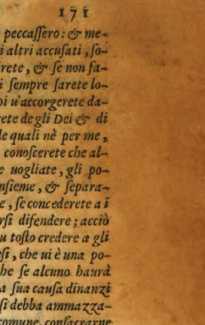 171
peccaſſero: & me-
i altri accuſati, ſo-
rete, & ſe non fa-
i ſempre ſarete lo-
oi u'accorgerete da-
ete degli Dei & di
le quali nè per me,
conoſcerete che al-
e uogliate, gli po-
nſieme, & ſepara-
e, ſe concederete a i
rſi difendere; acciò
u toſto credere a gli
eſi, che ui è una po-
he ſe alcuno haurà
a ſua cauſa dinanzi
ſi debba ammazza-
comune, conſacrarne